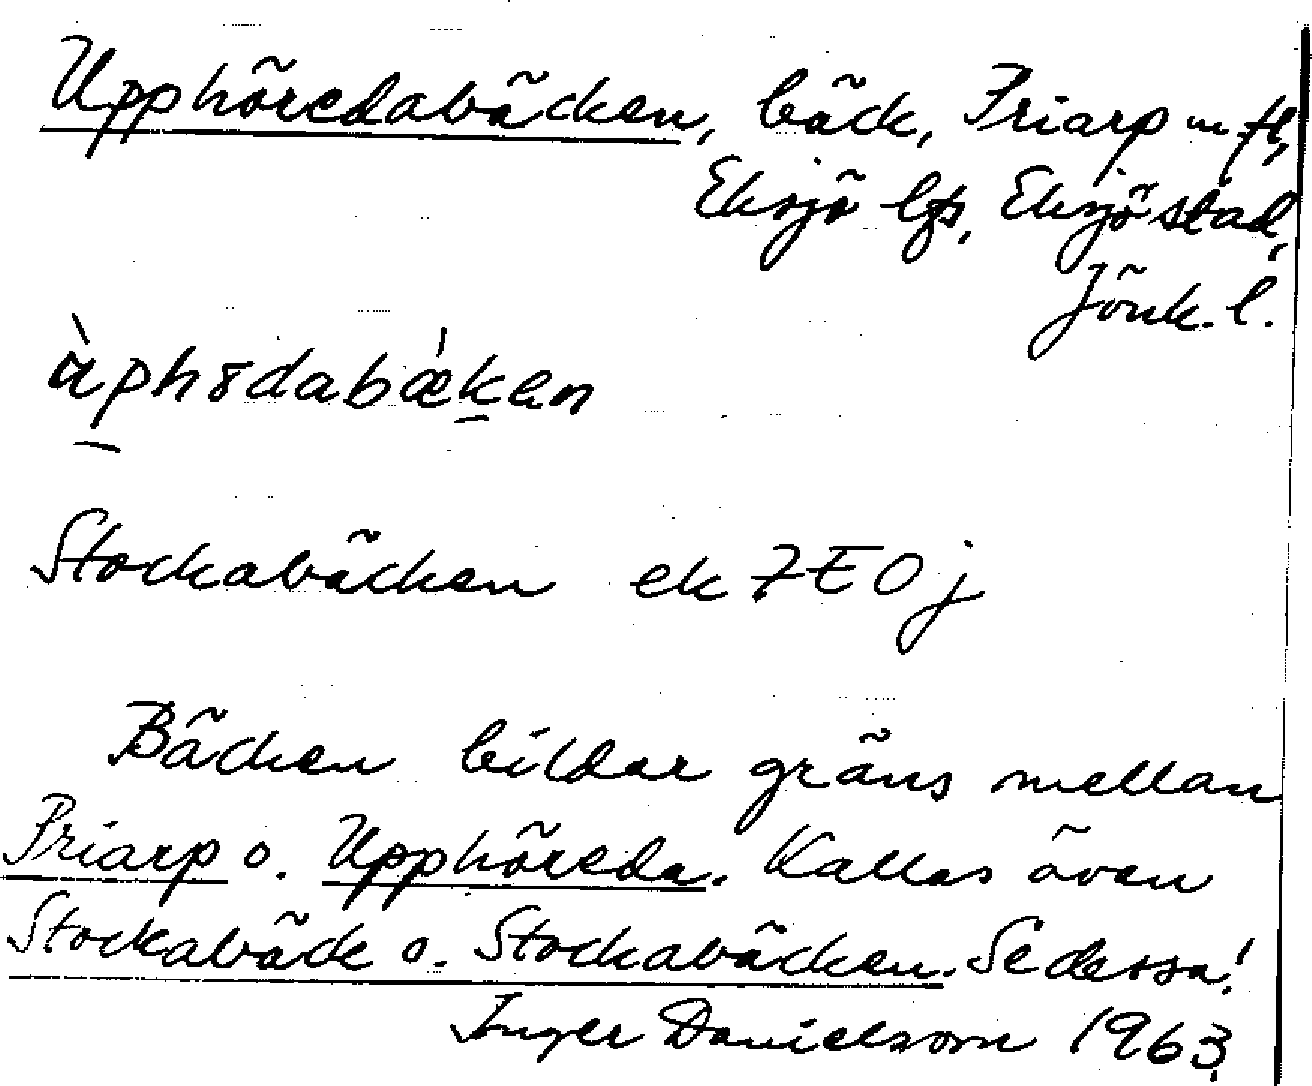 Upphöredabäcken, bäck, Friarp m fl,
Eksjö lfs, Eksjö stad,
Jönk. l.
Stockabäcken ek 7E0j
Bäcken bildar gräns mellan
Friarp o. Upphöreda. Kallas även
Stockabäck o. Stockabäcken. Se dessa!
Inger Danielsson 1963